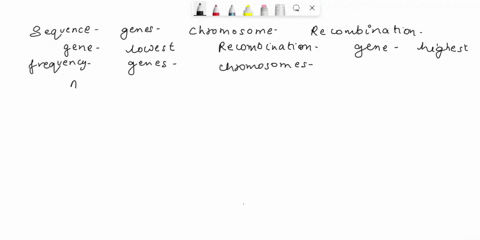 Sequence- genes- chromosome- Recombination.
gene- lowest Recombination- gene- highest
frequency- genes- chromosomes-
n